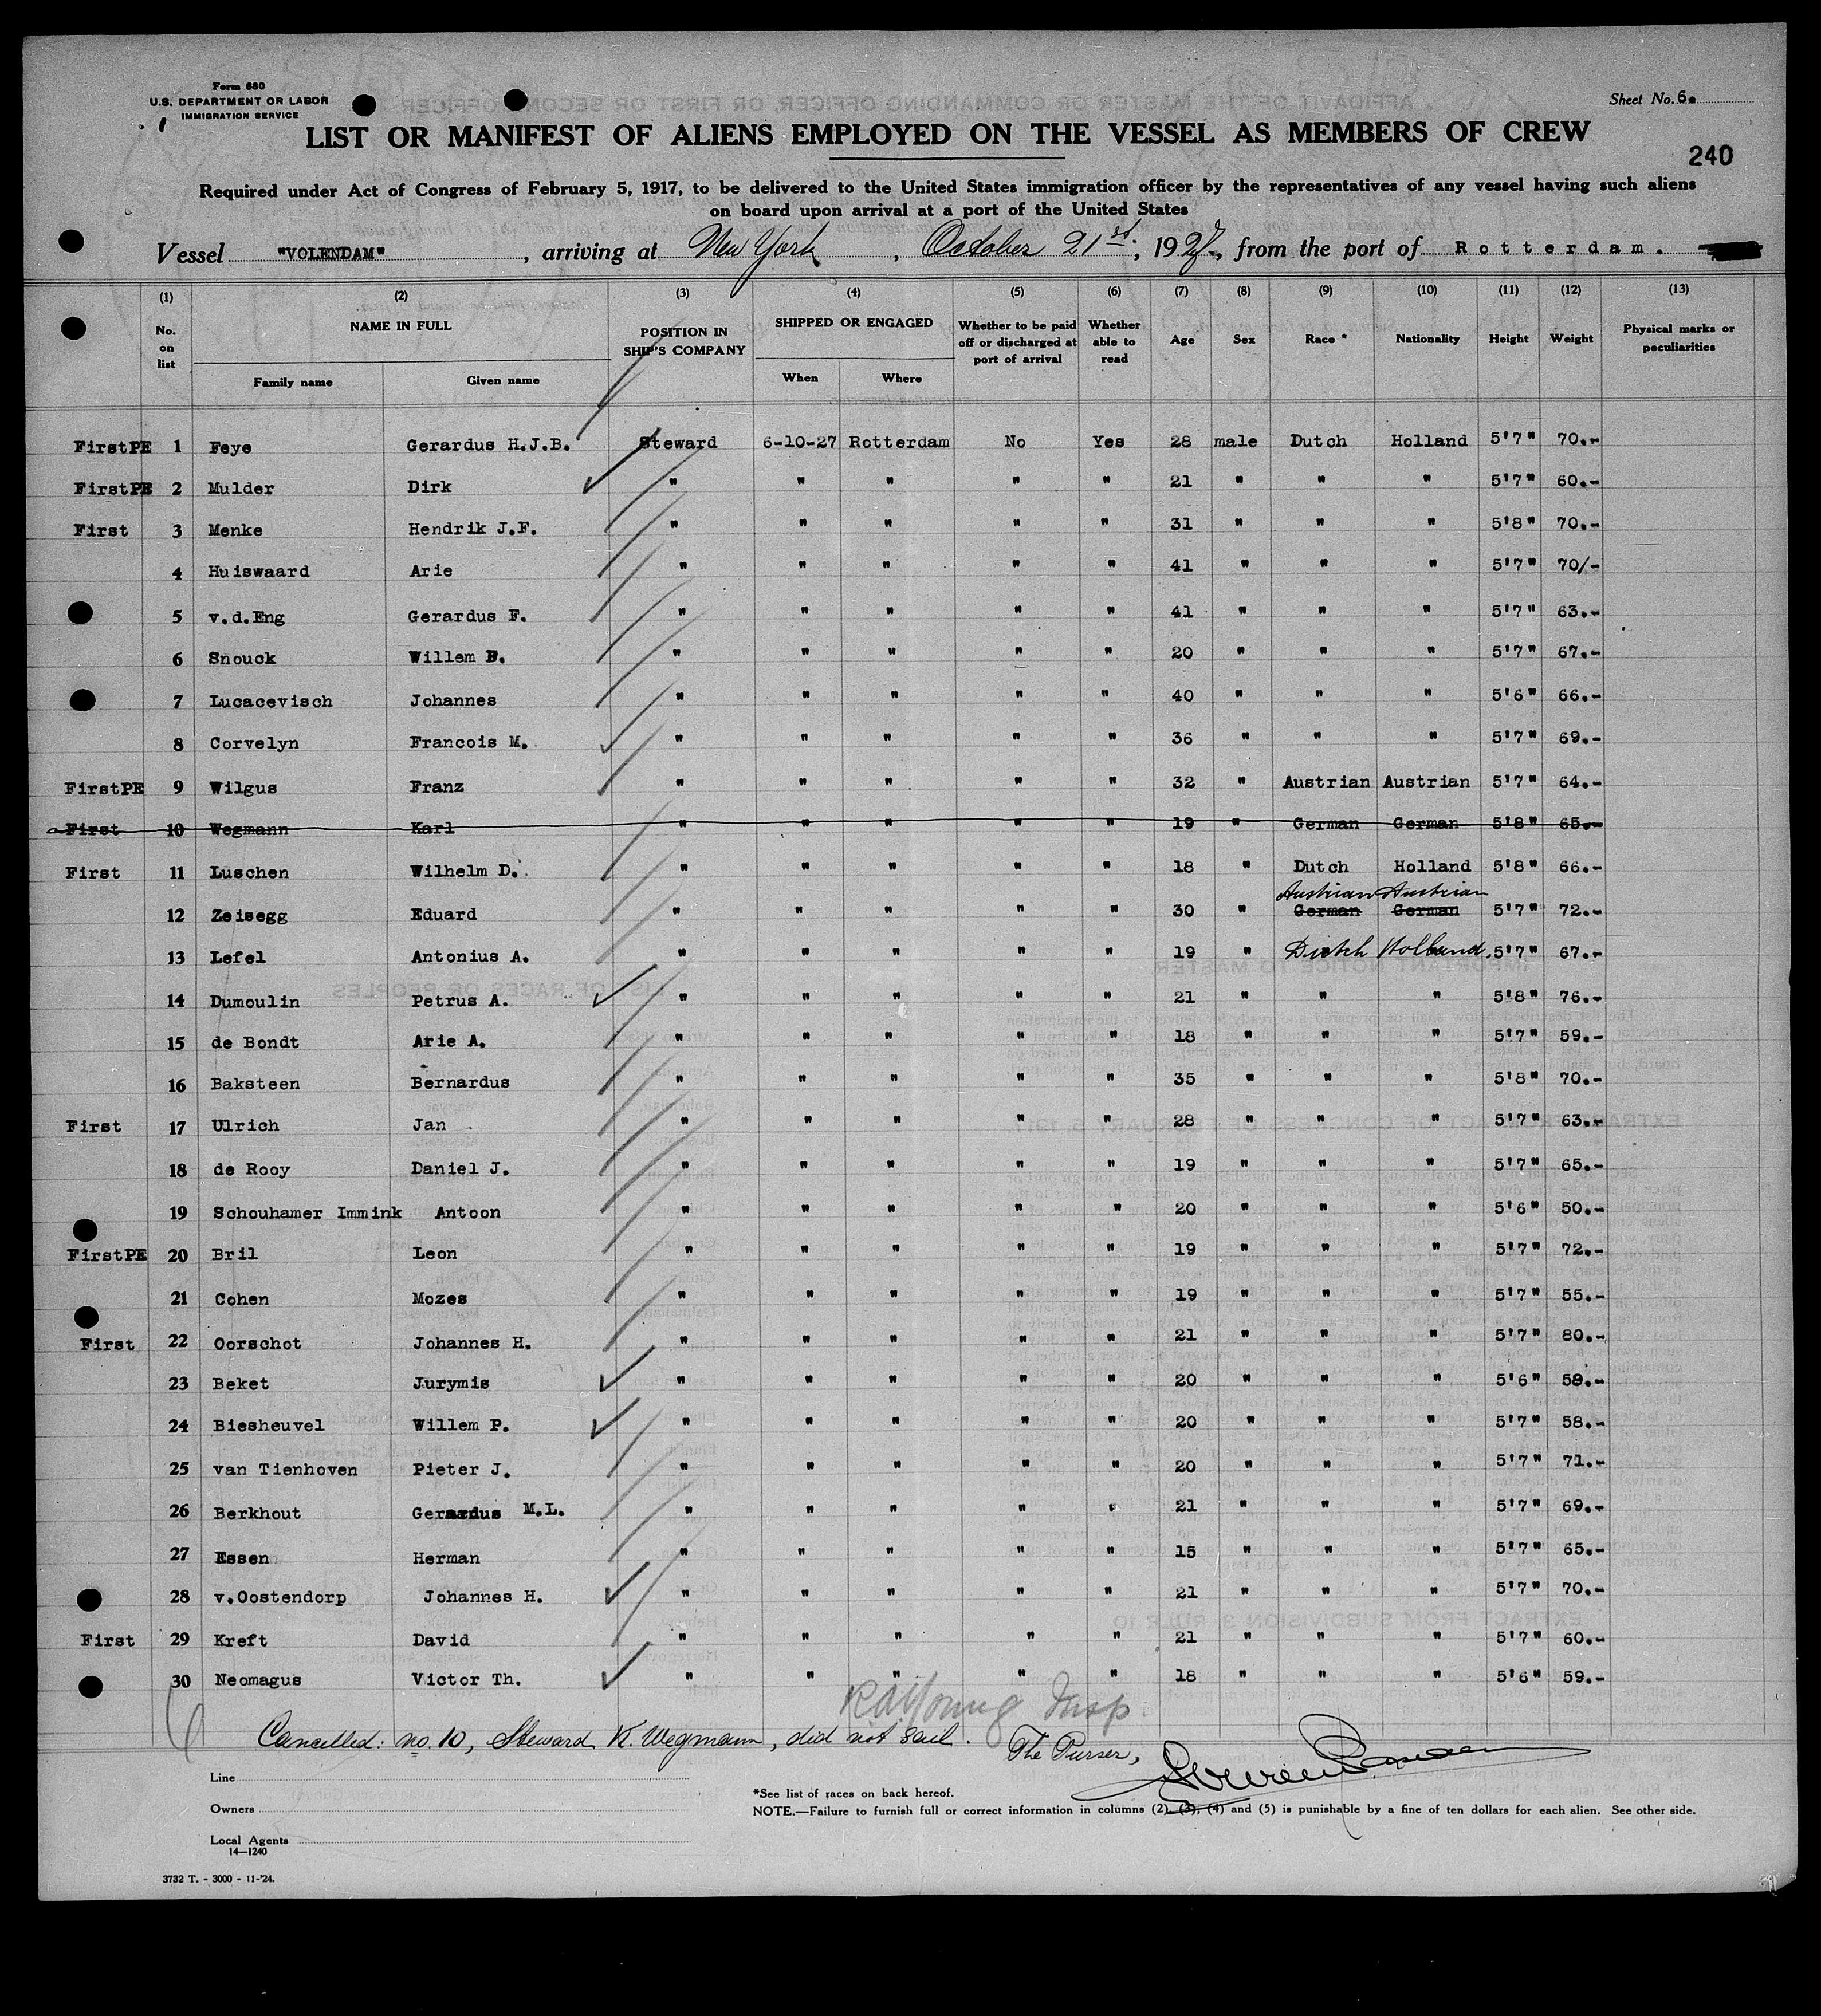 Form 680
U.S. DEPARTMENT OR LABOR
IMMIGRATION SERVICE
Sheet No. 6.
LIST OR MANIFEST OF ALIENS EMPLOYED ON THE VESSEL AS MEMBERS OF CREW
240
Required under Act of Congress of February 5, 1917, to be delivered to the United States immigration officer by the representatives of any vessel having such aliens
on board upon arrival at a port of the United States
Vessel "VOLENDAM", arriving at New York, October 21st, 1927, from the port of Rotterdam.
(1) (2) (3) (4) (5) (6) (7) (8) (9) (10) (11) (12) (13)
No. on list NAME IN FULL Family name Given name POSITION IN SHIP'S COMPANY SHIPPED OR ENGAGED When Where Whether to be paid off or discharged at port of arrival Whether able to read Age Sex Race * Nationality Height Weight Physical marks or peculiarities
FirstPE 1 Feye Gerardus H.J.B. Steward 6-10-27 Rotterdam No Yes 28 male Dutch Holland 5'7" 70.-
FirstPE 2 Mulder Dirk " " " " " 21 " " " 5'7" 60.-
First 3 Menke Hendrik J.F. " " " " " 31 " " " 5'8" 70.-
4 Huiswaard Arie " " " " " 41 " " " 5'7" 70/-
5 v.d.Eng Gerardus F. " " " " " 41 " " " 5'7" 63.-
6 Snouck Willem B. " " " " " 20 " " " 5'7" 67.-
7 Lucacevisch Johannes " " " " " 40 " " " 5'6" 66.-
8 Corvelyn Francois M. " " " " " 36 " " " 5'7" 69.-
FirstPE 9 Wilgus Franz " " " " " 32 " Austrian Austrian 5'7" 64.-
First 10 Wegmann Karl " " " " " 19 " German German 5'8" 65.-
First 11 Luschen Wilhelm D. " " " " " 18 " Dutch Holland 5'8" 66.-
Austrian Austrian
12 Zeisegg Eduard " " " " " 30 " German German 5'7" 72.-
13 Lefel Antonius A. " " " " " 19 " Dutch Holland. 5'7" 67.-
14 Dumoulin Petrus A. " " " " " 21 " " " 5'8" 76.-
15 de Bondt Arie A. " " " " " 18 " " " 5'7" 59.-
16 Baksteen Bernardus " " " " " 35 " " " 5'8" 70.-
First 17 Ulrich Jan " " " " " 28 " " " 5'7" 63.-
18 de Rooy Daniel J. " " " " " 19 " " " 5'7" 65.-
19 Schouhamer Immink Antoon " " " " " 20 " " " 5'6" 50.-
FirstPE 20 Bril Leon " " " " " 19 " " " 5'7" 72.-
21 Cohen Mozes " " " " " 19 " " " 5'7" 55.-
First 22 Oorschot Johannes H. " " " " " 21 " " " 5'7" 80.-
23 Beket Jurymis " " " " " 20 " " " 5'6" 58.-
24 Biesheuvel Willem P. " " " " " 20 " " " 5'7" 58.-
25 van Tienhoven Pieter J. " " " " " 20 " " " 5'7" 71.-
26 Berkhout Gerardus M.L. " " " " " 21 " " " 5'7" 69.-
27 Essen Herman " " " " " 15 " " " 5'7" 65.-
28 v.Oostendorp Johannes H. " " " " " 21 " " " 5'7" 70.-
First 29 Kreft David " " " " " 21 " " " 5'7" 60.-
30 Neomagus Victor Th. " " " " " 18 " " " 5'6" 59.-
Young Insp
Cancelled: no. 10, Steward K. Wegmann, did not sail. The Purser,
Line
*See list of races on back hereof.
Owners
NOTE.—Failure to furnish full or correct information in columns (2), (3), (4) and (5) is punishable by a fine of ten dollars for each alien. See other side.
Local Agents
14—1240
3732 T. - 3000 - 11-'24.